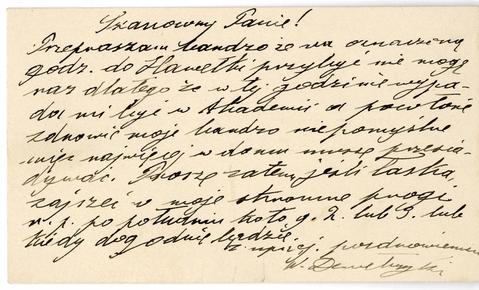 Szanowny Panie!
Przepraszam bardzo że na oznaczoną
godz. do Hawełki przybyć nie mogę
raz dlatego że w tej godzinie wypa-
da mi być w Akademii a powtóre
zdrowie moje bardzo niepomyślne
więc najwięcej w domu muszę przesia-
dywać. Proszę zatem, jeśli łaska,
zajrzeć w moje skromne progi
n. p. po południu koło g. 2. lub 3. lub
kiedy dogodnie będzie.
z uprzej. pozdrowieniem